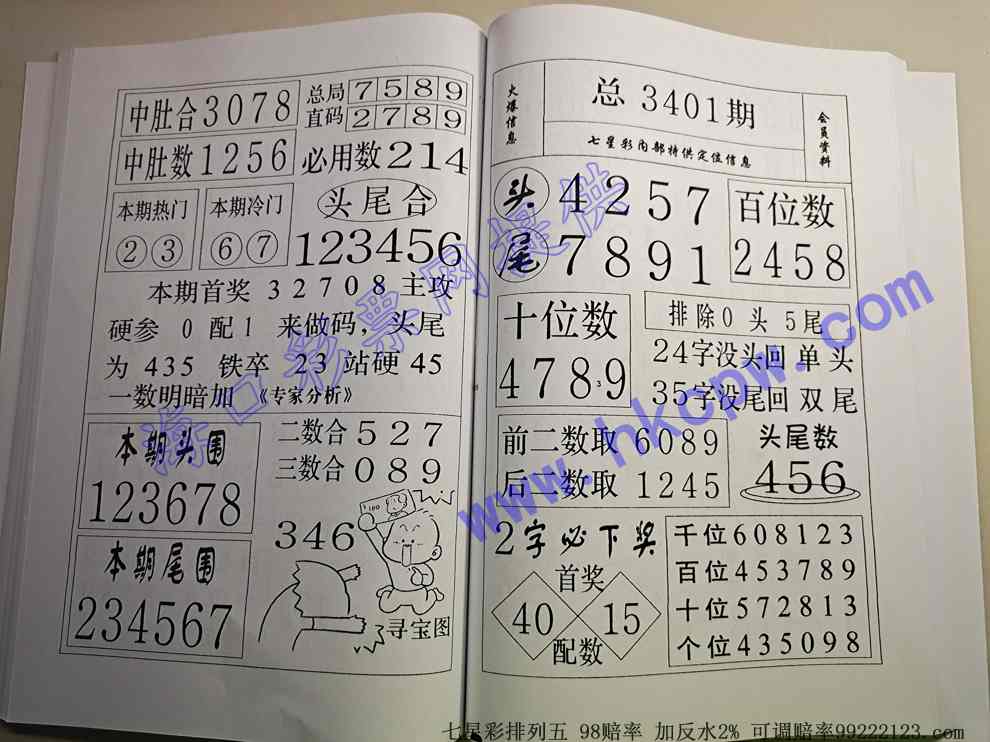 中肚合3078
总局 7589
直码 2789
中肚数1256
必用数214
本期热门
②③
本期冷门
⑥⑦
头尾合
123456
本期首奖 32708 主攻
硬参 0 配1 来做码，头尾
为 435 铁卒 23 站硬 45
一数明暗加 《专家分析》
本期头围
123678
二数合 527
三数合 089
本期尾围
234567
346
100
寻宝图
火爆信息
总 3401期
七星彩内部特供定位信息
会员资料
头 4257
尾 7891
百位数
2458
十位数
4789
3
排除0 头 5尾
24字没头回 单 头
35字没尾回 双 尾
前二数取 6089
后二数取 1245
头尾数
456
2字必下奖
首奖
40
15
配数
千位608123
百位453789
十位572813
个位435098
海口彩票网提供
www.hkcpw.com
七星彩排列五 98赔率 加反水2% 可调赔率99222123.com